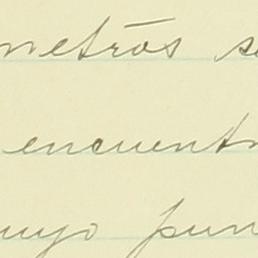 metros s
encuent
uyo pun